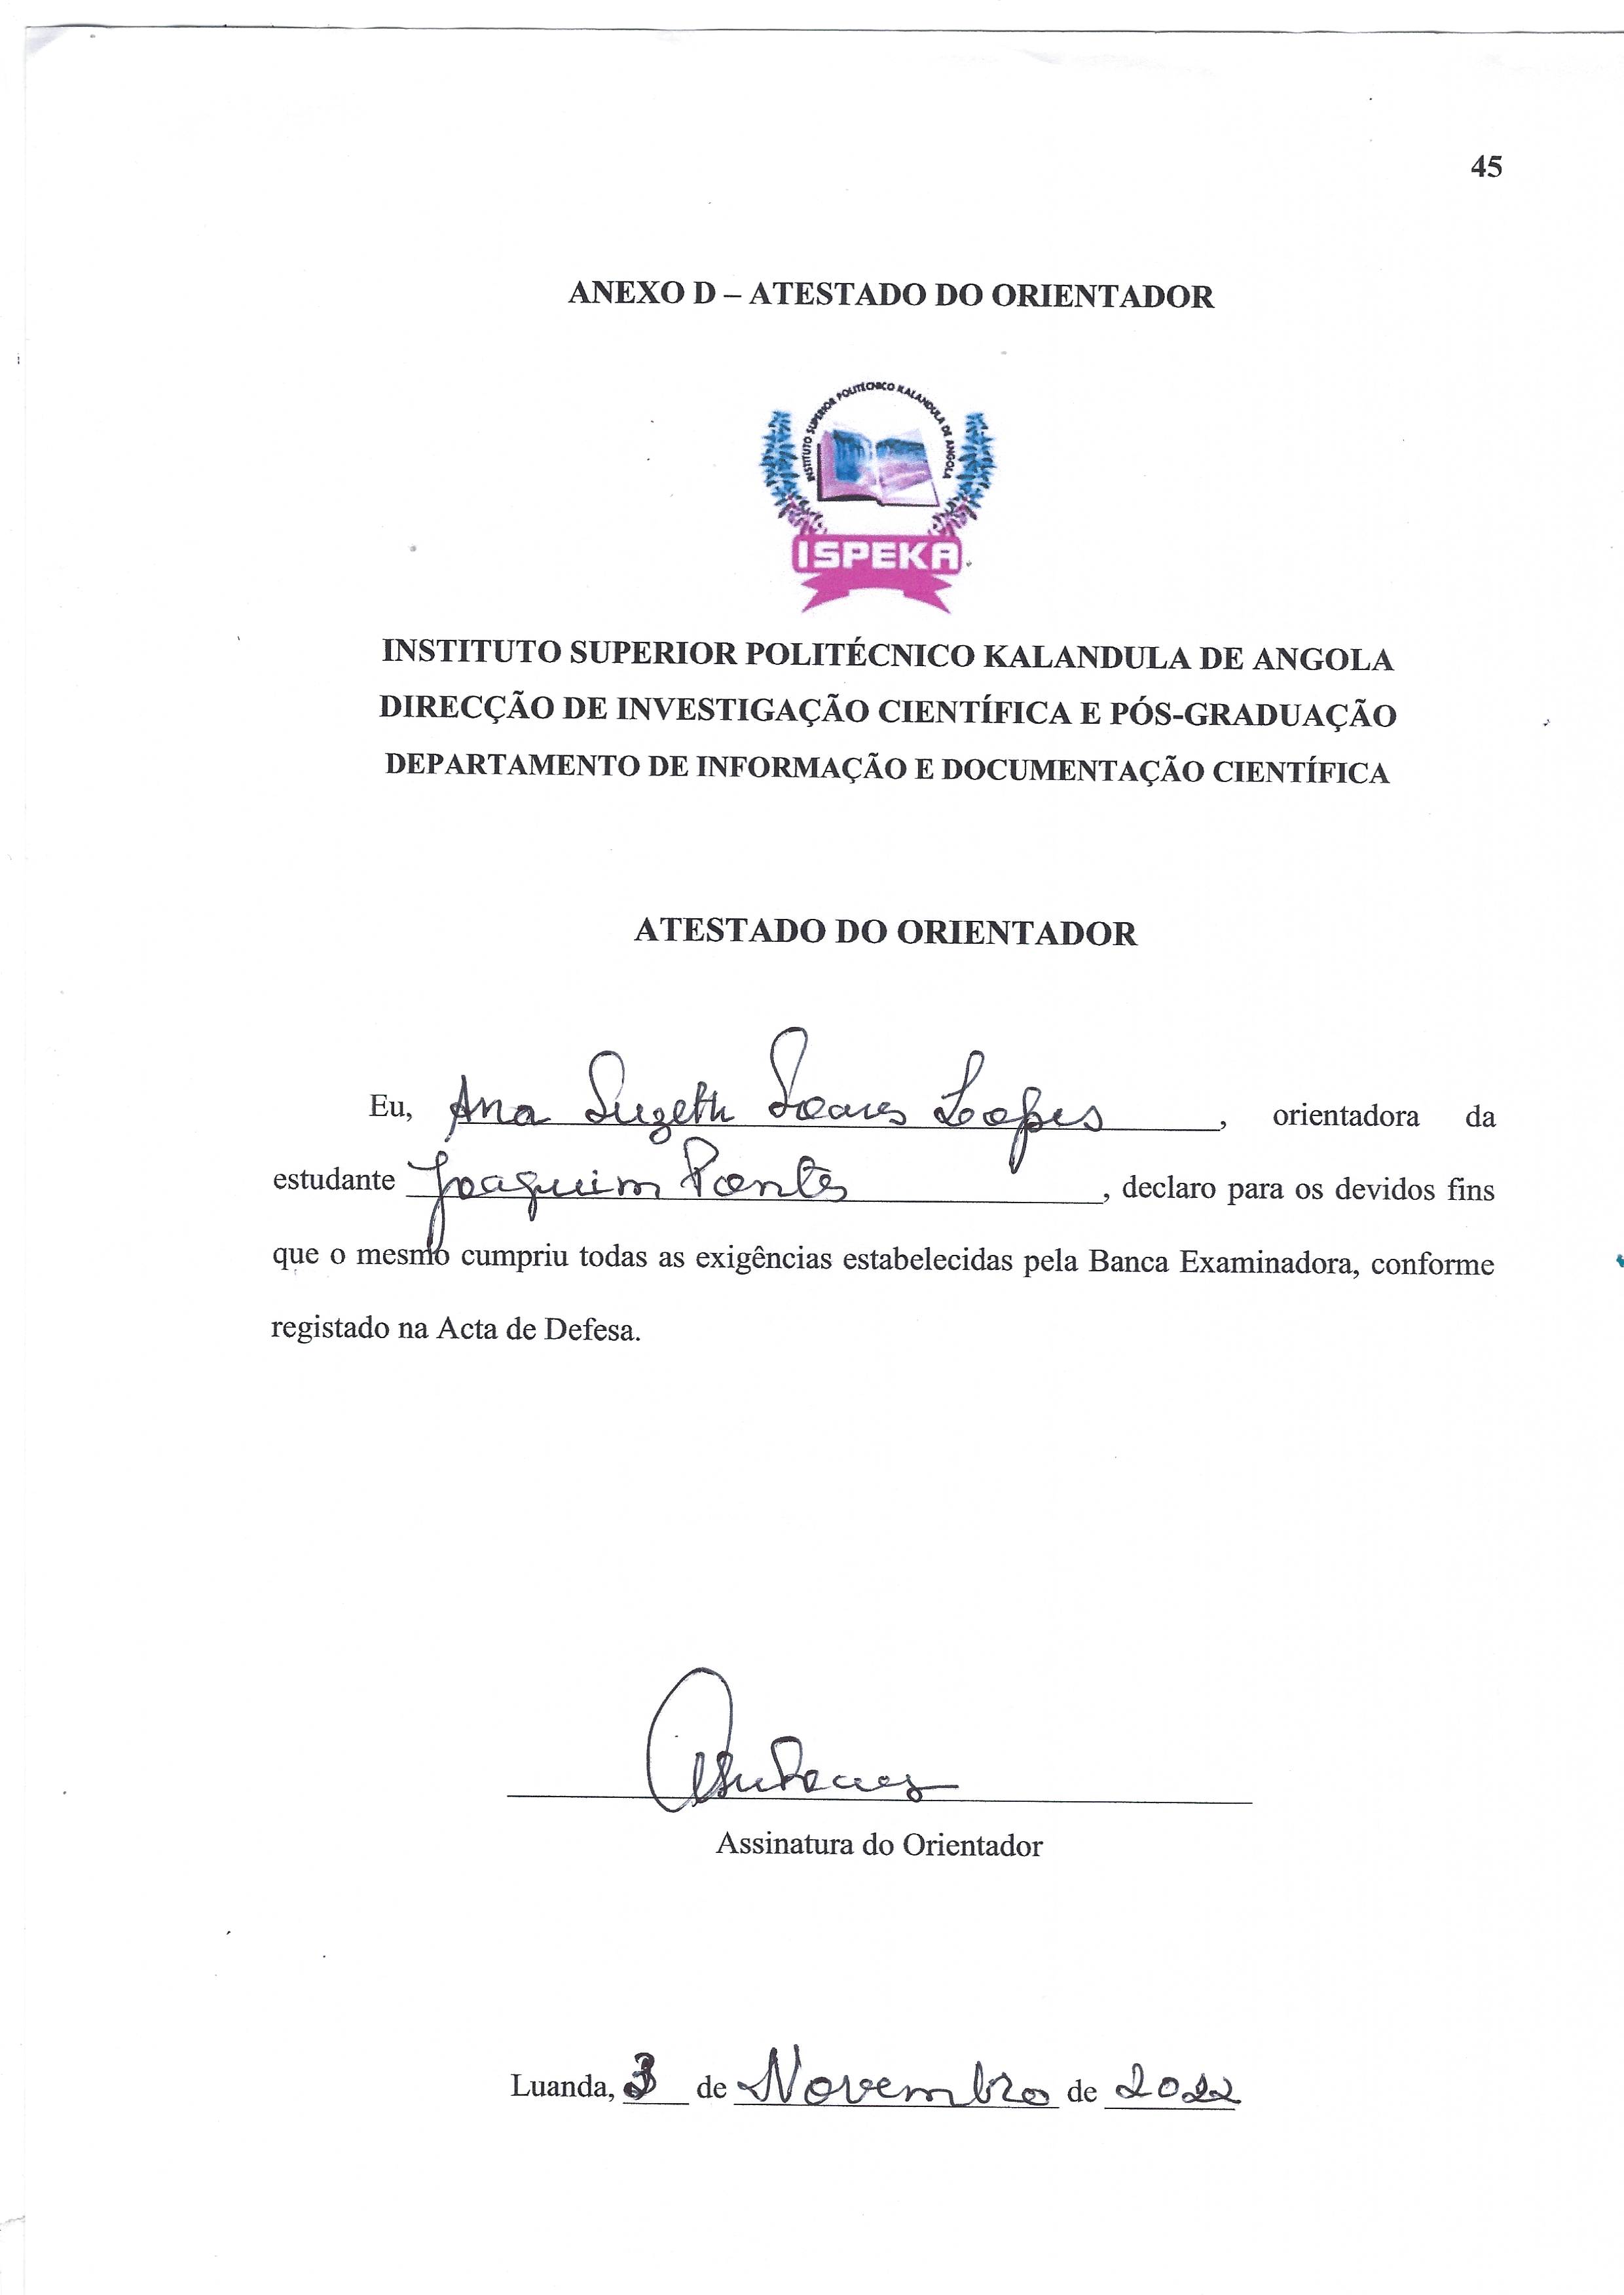 45
ANEXO D – ATESTADO DO ORIENTADOR
INSTITUTO SUPERIOR POLITÉCNICO KALANDULA DE ANGOLA
ISPEKA
INSTITUTO SUPERIOR POLITÉCNICO KALANDULA DE ANGOLA
DIRECÇÃO DE INVESTIGAÇÃO CIENTÍFICA E PÓS-GRADUAÇÃO
DEPARTAMENTO DE INFORMAÇÃO E DOCUMENTAÇÃO CIENTÍFICA
ATESTADO DO ORIENTADOR
Eu, Ana Suzeth Soares Lopes, orientadora da
estudante Joaquim Pontes, declaro para os devidos fins
que o mesmo cumpriu todas as exigências estabelecidas pela Banca Examinadora, conforme
registado na Acta de Defesa.
Assinatura do Orientador
Luanda, 3 de Novembro de 2022